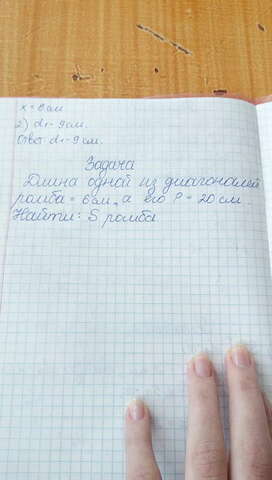 x = 9 см
2) d₁ - 9 см.
Ответ: d₁ - 9 см.
Задача
Длина одной из диагоналей
ромба = 6 см, а его P = 20 см
Найти: S ромба